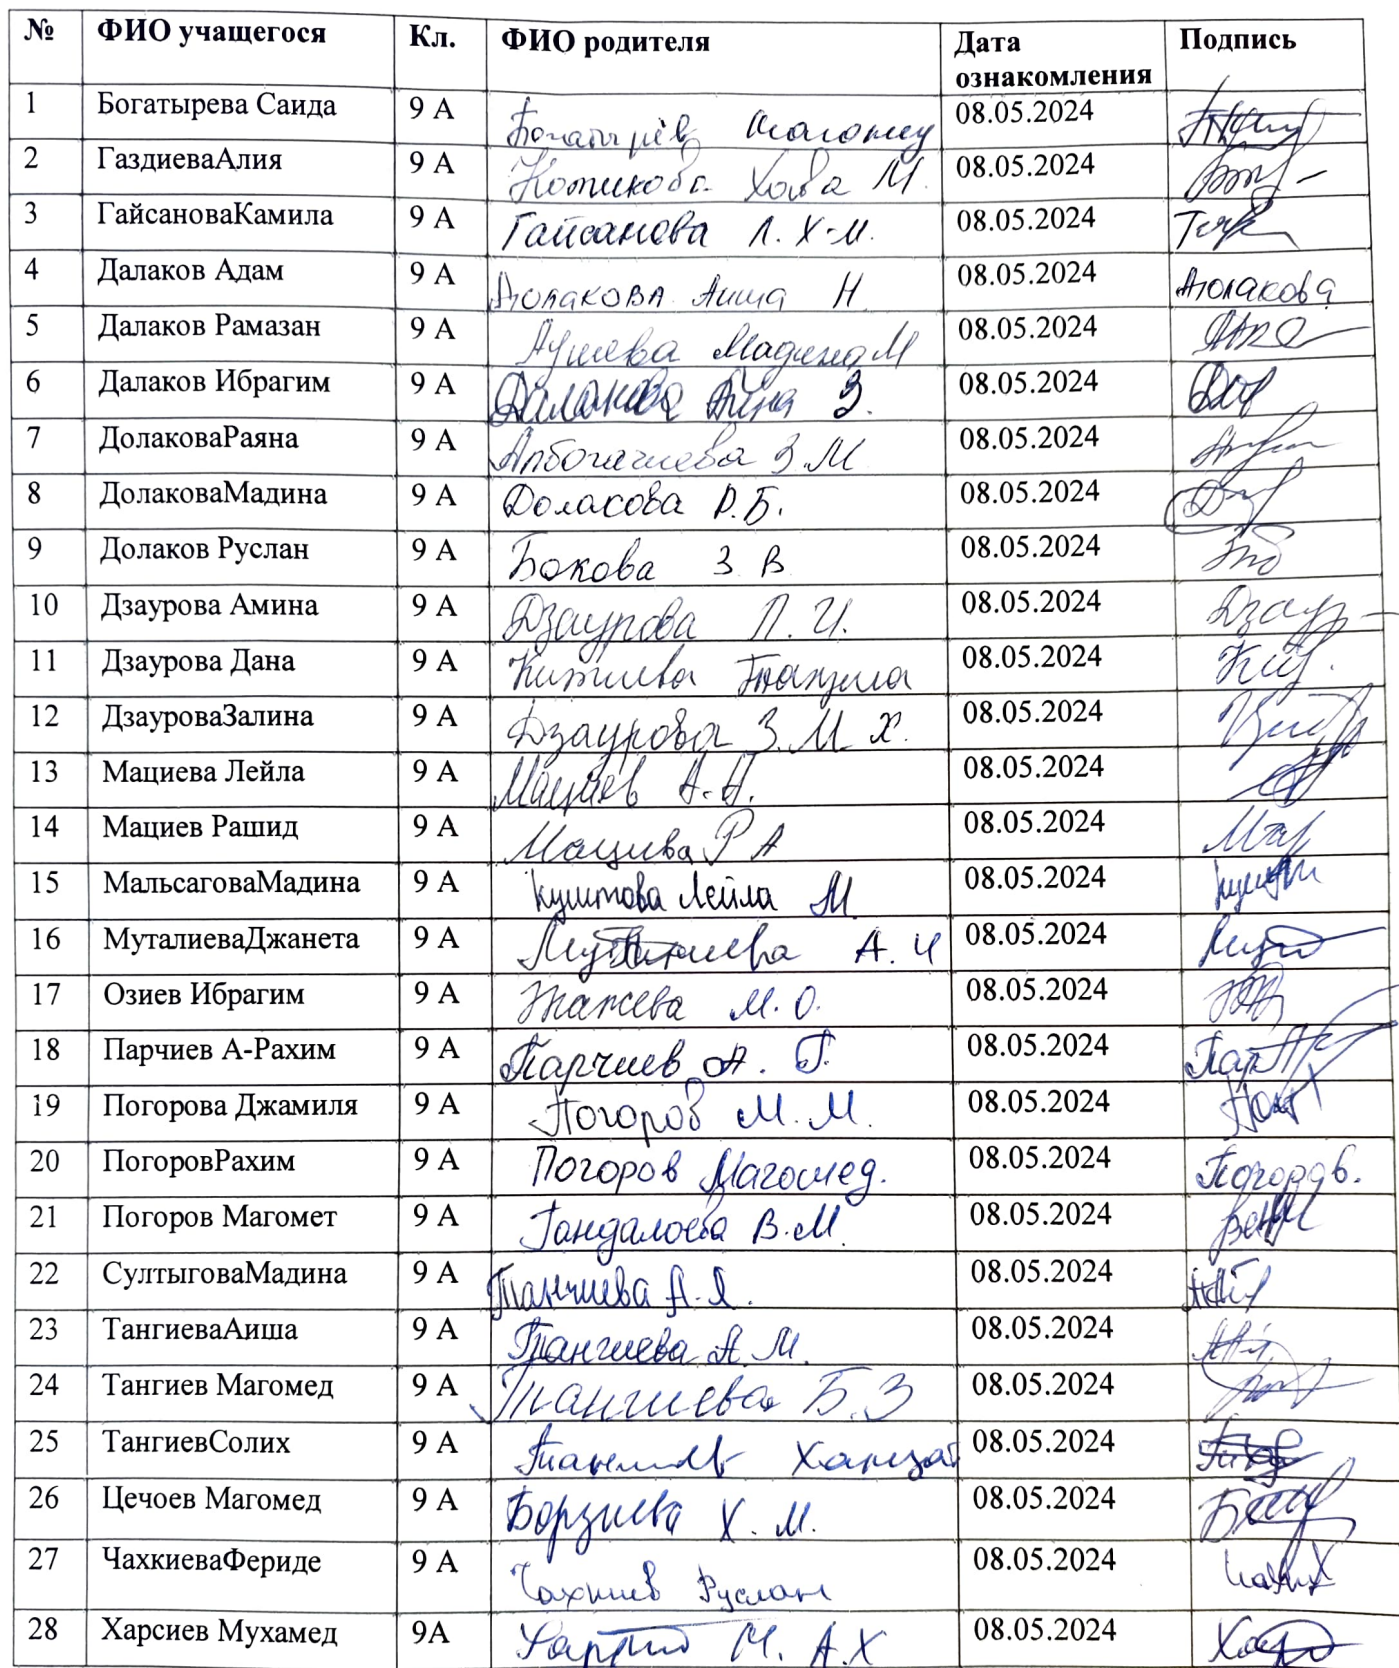 № ФИО учащегося Кл. ФИО родителя Дата ознакомления Подпись
1 Богатырева Саида 9 А Богатырёв 08.05.2024
2 ГаздиеваАлия 9 А Хава М. 08.05.2024
3 ГайсановаКамила 9 А Гайсанова Л. Х-М. 08.05.2024
4 Далаков Адам 9 А Долакова Аиша Н 08.05.2024 Долакова
5 Далаков Рамазан 9 А Аушева Мадина М 08.05.2024
6 Далаков Ибрагим 9 А Далакова З. 08.05.2024
7 ДолаковаРаяна 9 А Албогачиева З.М 08.05.2024
8 ДолаковаМадина 9 А Долакова Р.Б. 08.05.2024
9 Долаков Руслан 9 А Бокова З В 08.05.2024
10 Дзаурова Амина 9 А Дзаурова Л. И. 08.05.2024 Дзаур
11 Дзаурова Дана 9 А 08.05.2024
12 ДзауроваЗалина 9 А Дзаурова З. М Х. 08.05.2024
13 Мациева Лейла 9 А Мациев А.А. 08.05.2024
14 Мациев Рашид 9 А Мациева Р А 08.05.2024
15 МальсаговаМадина 9 А Куштова Лейла М. 08.05.2024
16 МуталиеваДжанета 9 А Муталиева А. И 08.05.2024
17 Озиев Ибрагим 9 А М. О. 08.05.2024
18 Парчиев А-Рахим 9 А Парчиев А. Г. 08.05.2024
19 Погорова Джамиля 9 А Погоров М. М. 08.05.2024
20 ПогоровРахим 9 А Погоров Магомед. 08.05.2024 Погоров.
21 Погоров Магомет 9 А Гандалоева В.М. 08.05.2024
22 СултыговаМадина 9 А Танчиева А. Я. 08.05.2024
23 ТангиеваАиша 9 А Тангиева А. М. 08.05.2024
24 Тангиев Магомед 9 А Тангиева Б.З 08.05.2024
25 ТангиевСолих 9 А 08.05.2024
26 Цечоев Магомед 9 А Борзиева Х. М. 08.05.2024
27 ЧахкиеваФериде 9 А Чахкиев Руслан 08.05.2024
28 Харсиев Мухамед 9А М. А.Х 08.05.2024